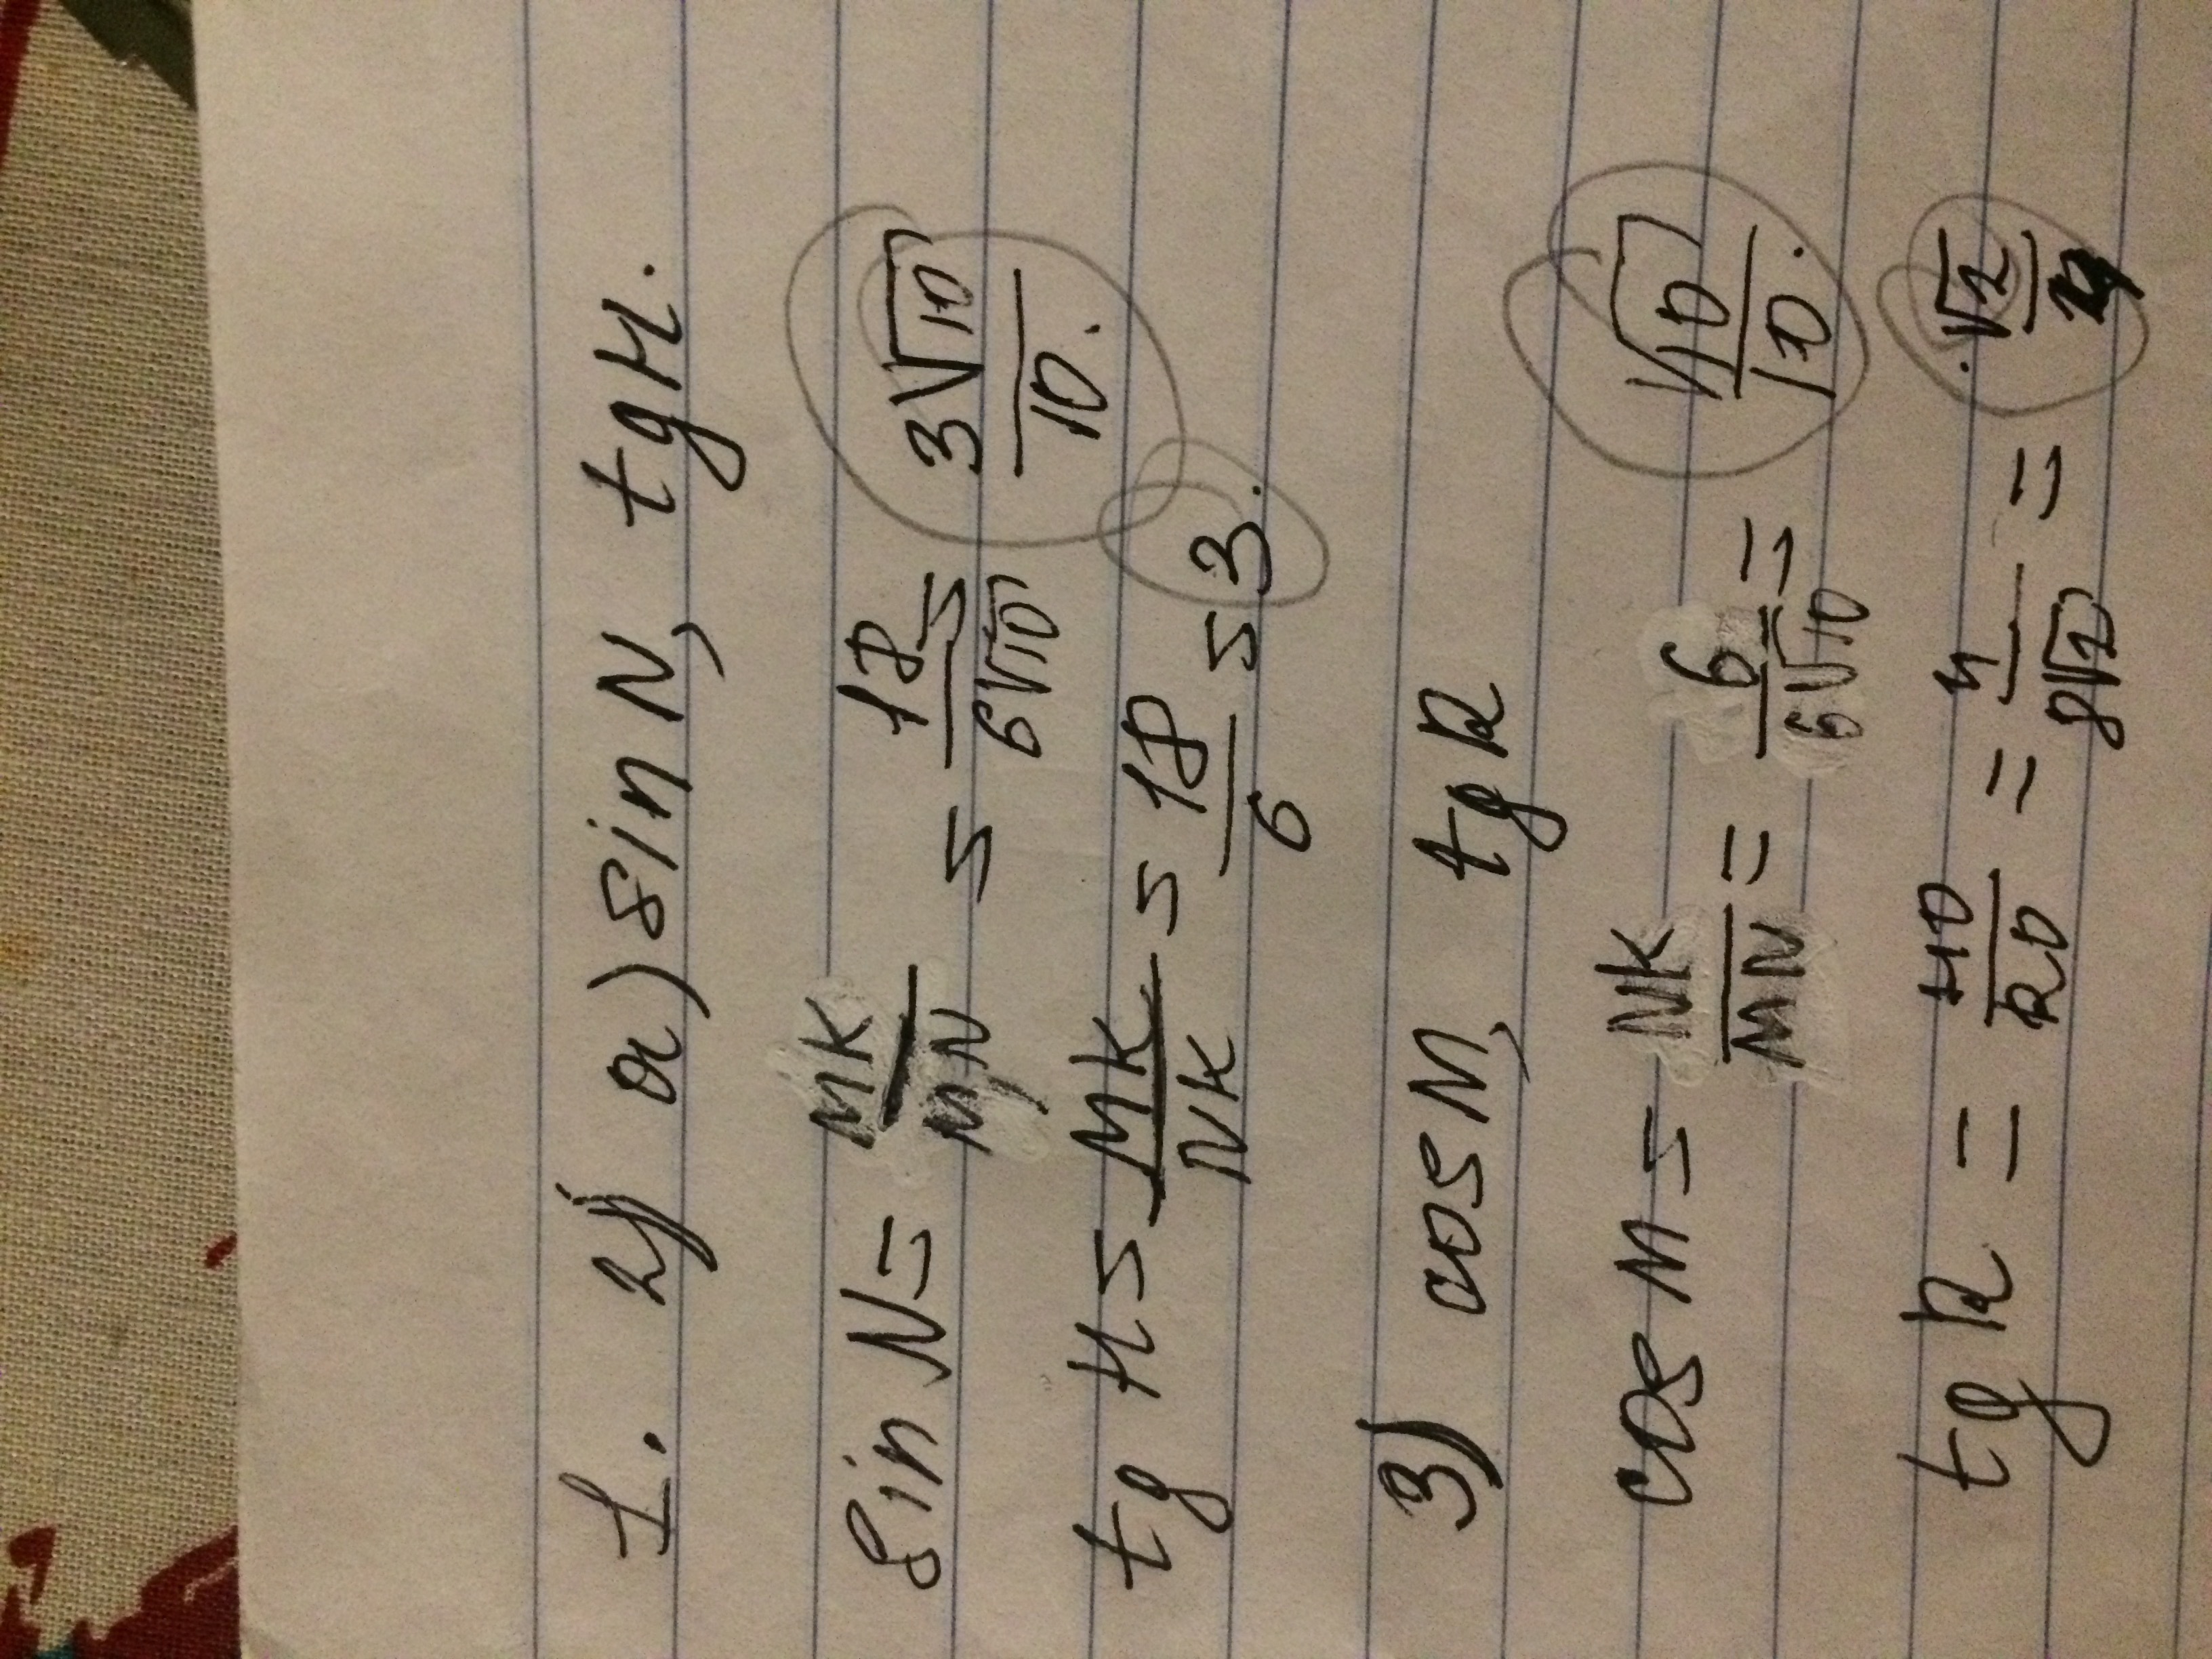 1. 2) a) sin N, tg H.
sin N = MK/MN = 18/6√10 = 3√10/10.
tg H = MK/NK = 18/6 = 3.
3) cos M, tg R
cos M = NK/MN = 6/6√10 = √10/10.
tg R = HD/RD = 4/8√2 =